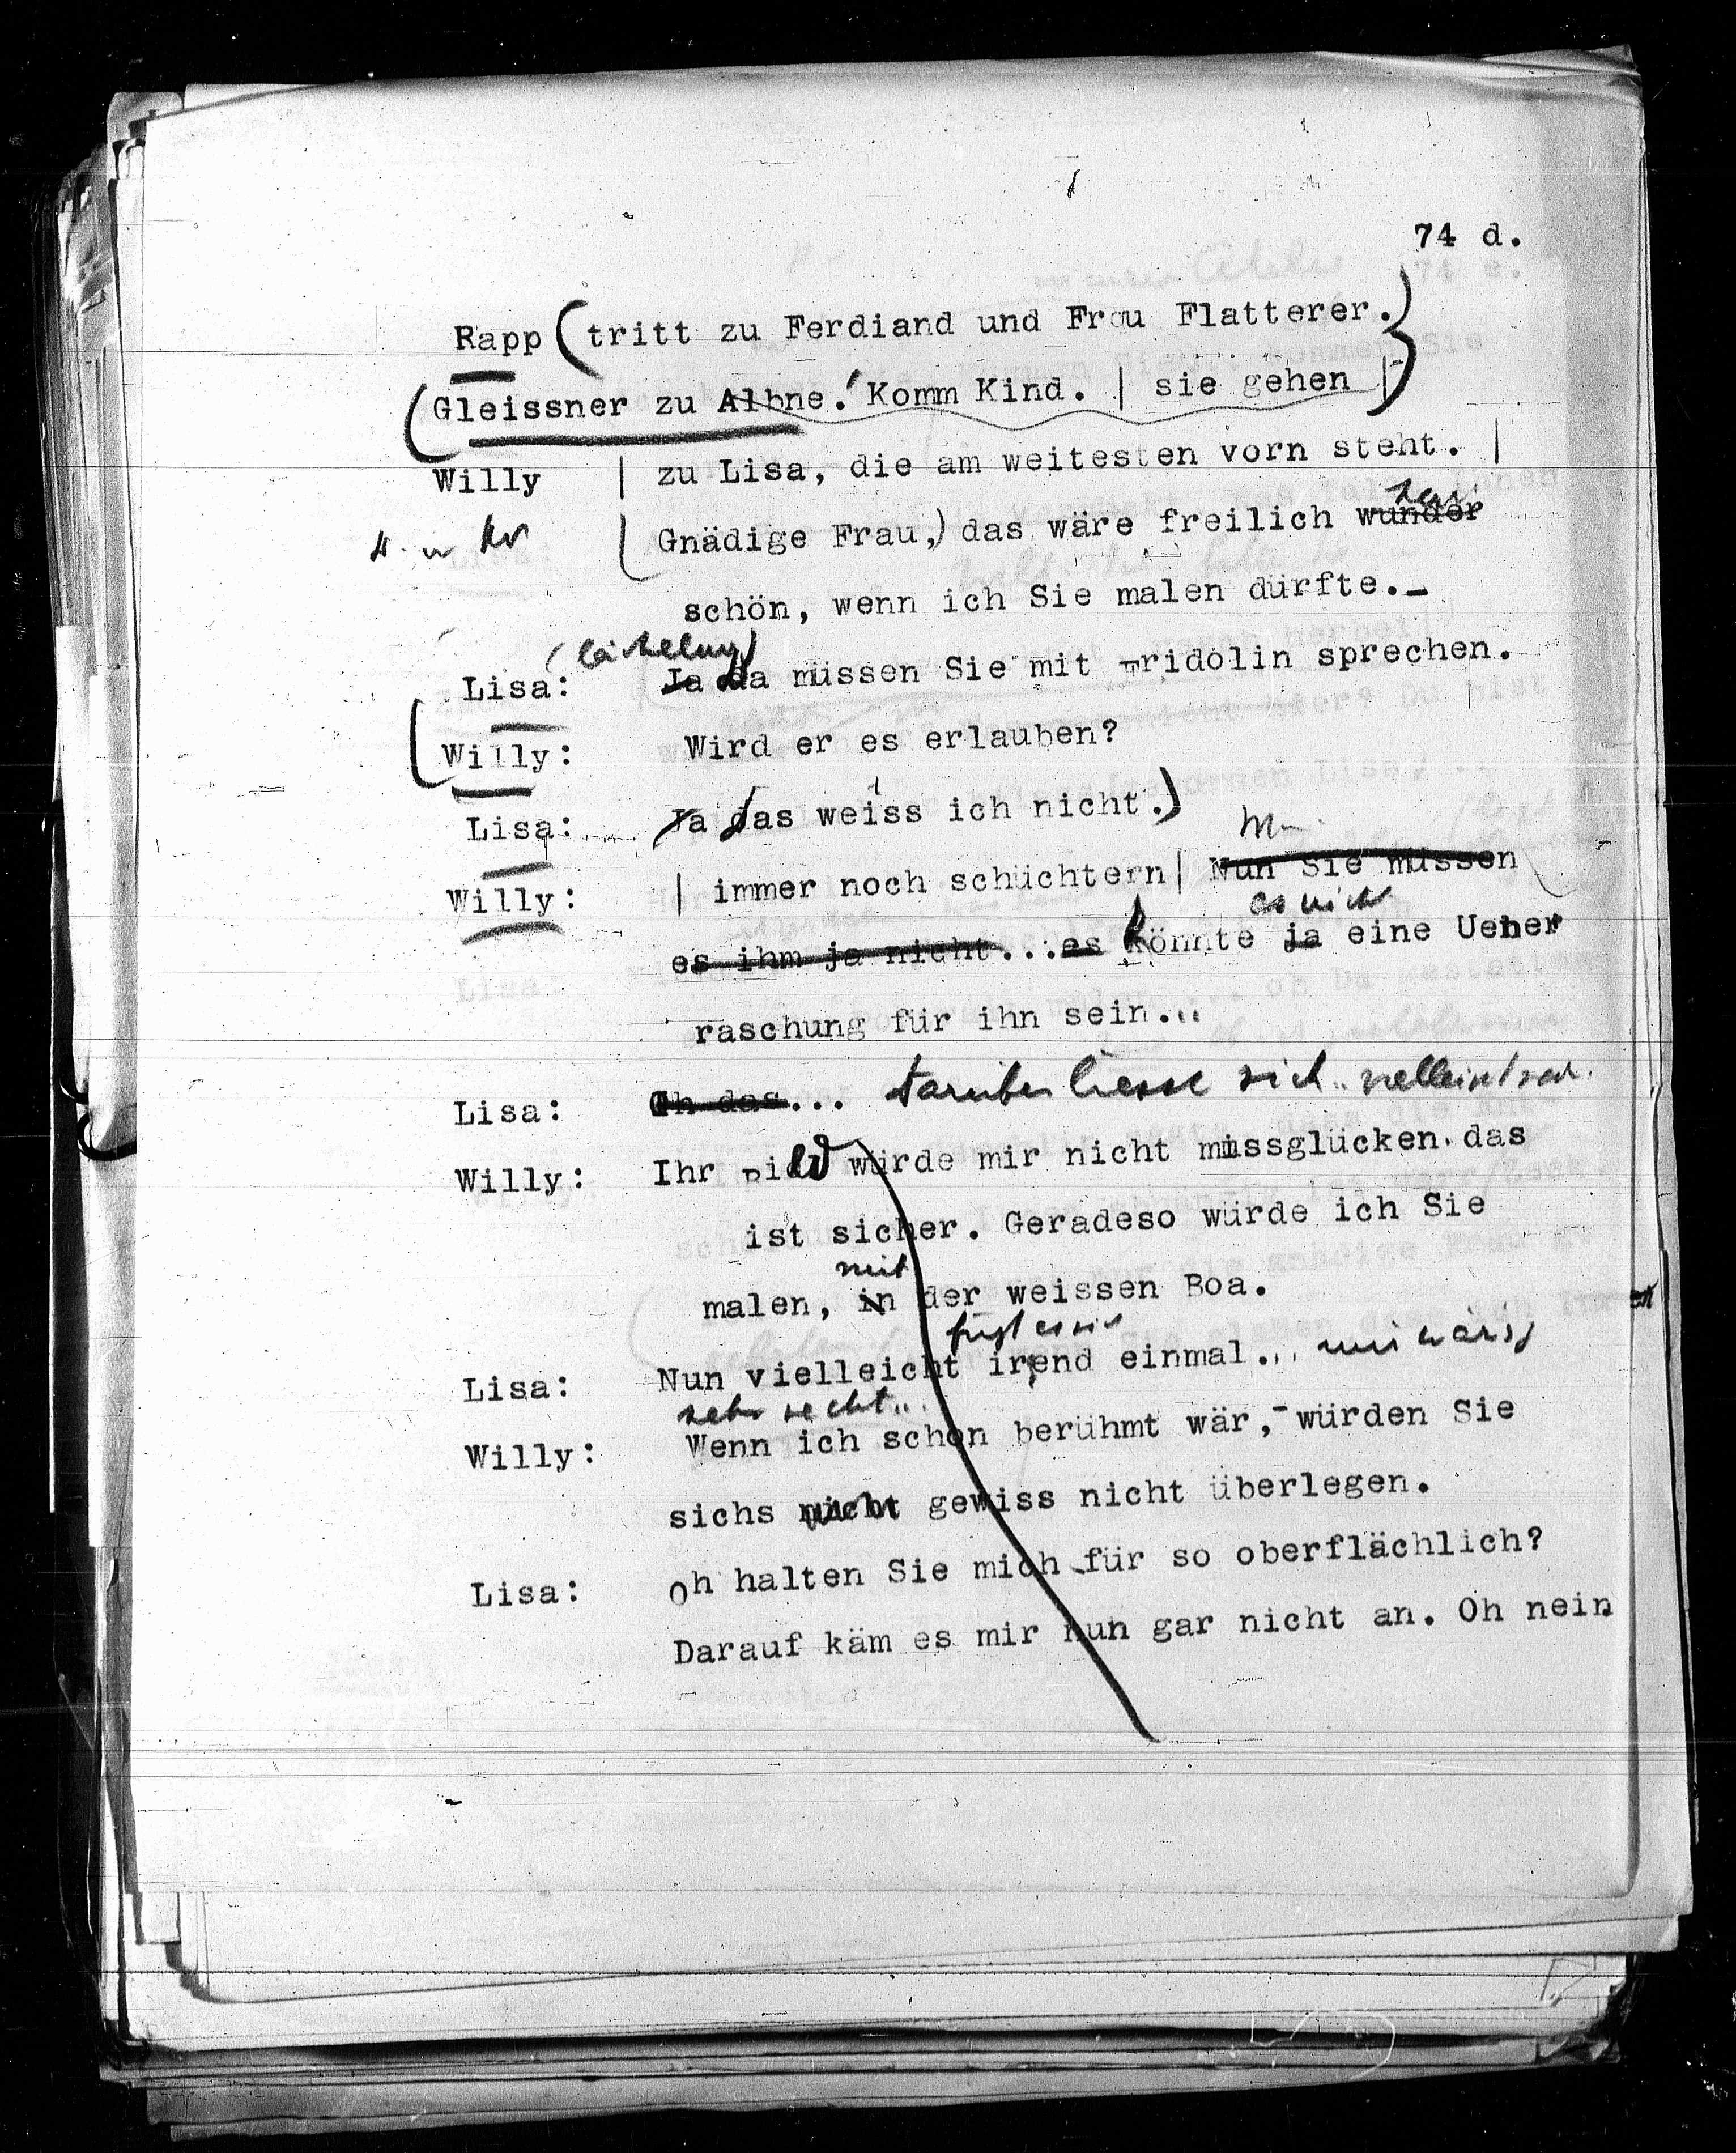 74 d.
Rapp (tritt zu Ferdiand und Frau Flatterer.)
(Gleissner zu Albne! Komm Kind. | sie gehen |)
Willy | zu Lisa, die am weitesten vorn steht. |
(Gnädige Frau,) das wäre freilich wunder
schön, wenn ich Sie malen dürfte.-
(lächelnd)
Lisa: Ja da müssen Sie mit Fridolin sprechen.
(Willy: Wird er es erlauben?
Lisa: Ja das weiss ich nicht.)
Willy: | immer noch schüchtern | Nun Sie müssen
es nicht
es ihm ja nicht...es könnte ja eine Ueber
raschung für ihn sein...
Lisa: Oh das... darüber liesse sich..
Willy: Ihr Bild würde mir nicht missglücken. das
ist sicher. Geradeso würde ich Sie
mit
malen, in der weissen Boa.
Lisa: Nun vielleicht irgend einmal... mir wärs
sehr recht..
Willy: Wenn ich schon berühmt wär,- würden Sie
sichs nicht gewiss nicht überlegen.
Lisa: Oh halten Sie mich für so oberflächlich?
Darauf käm es mir nun gar nicht an. Oh nein